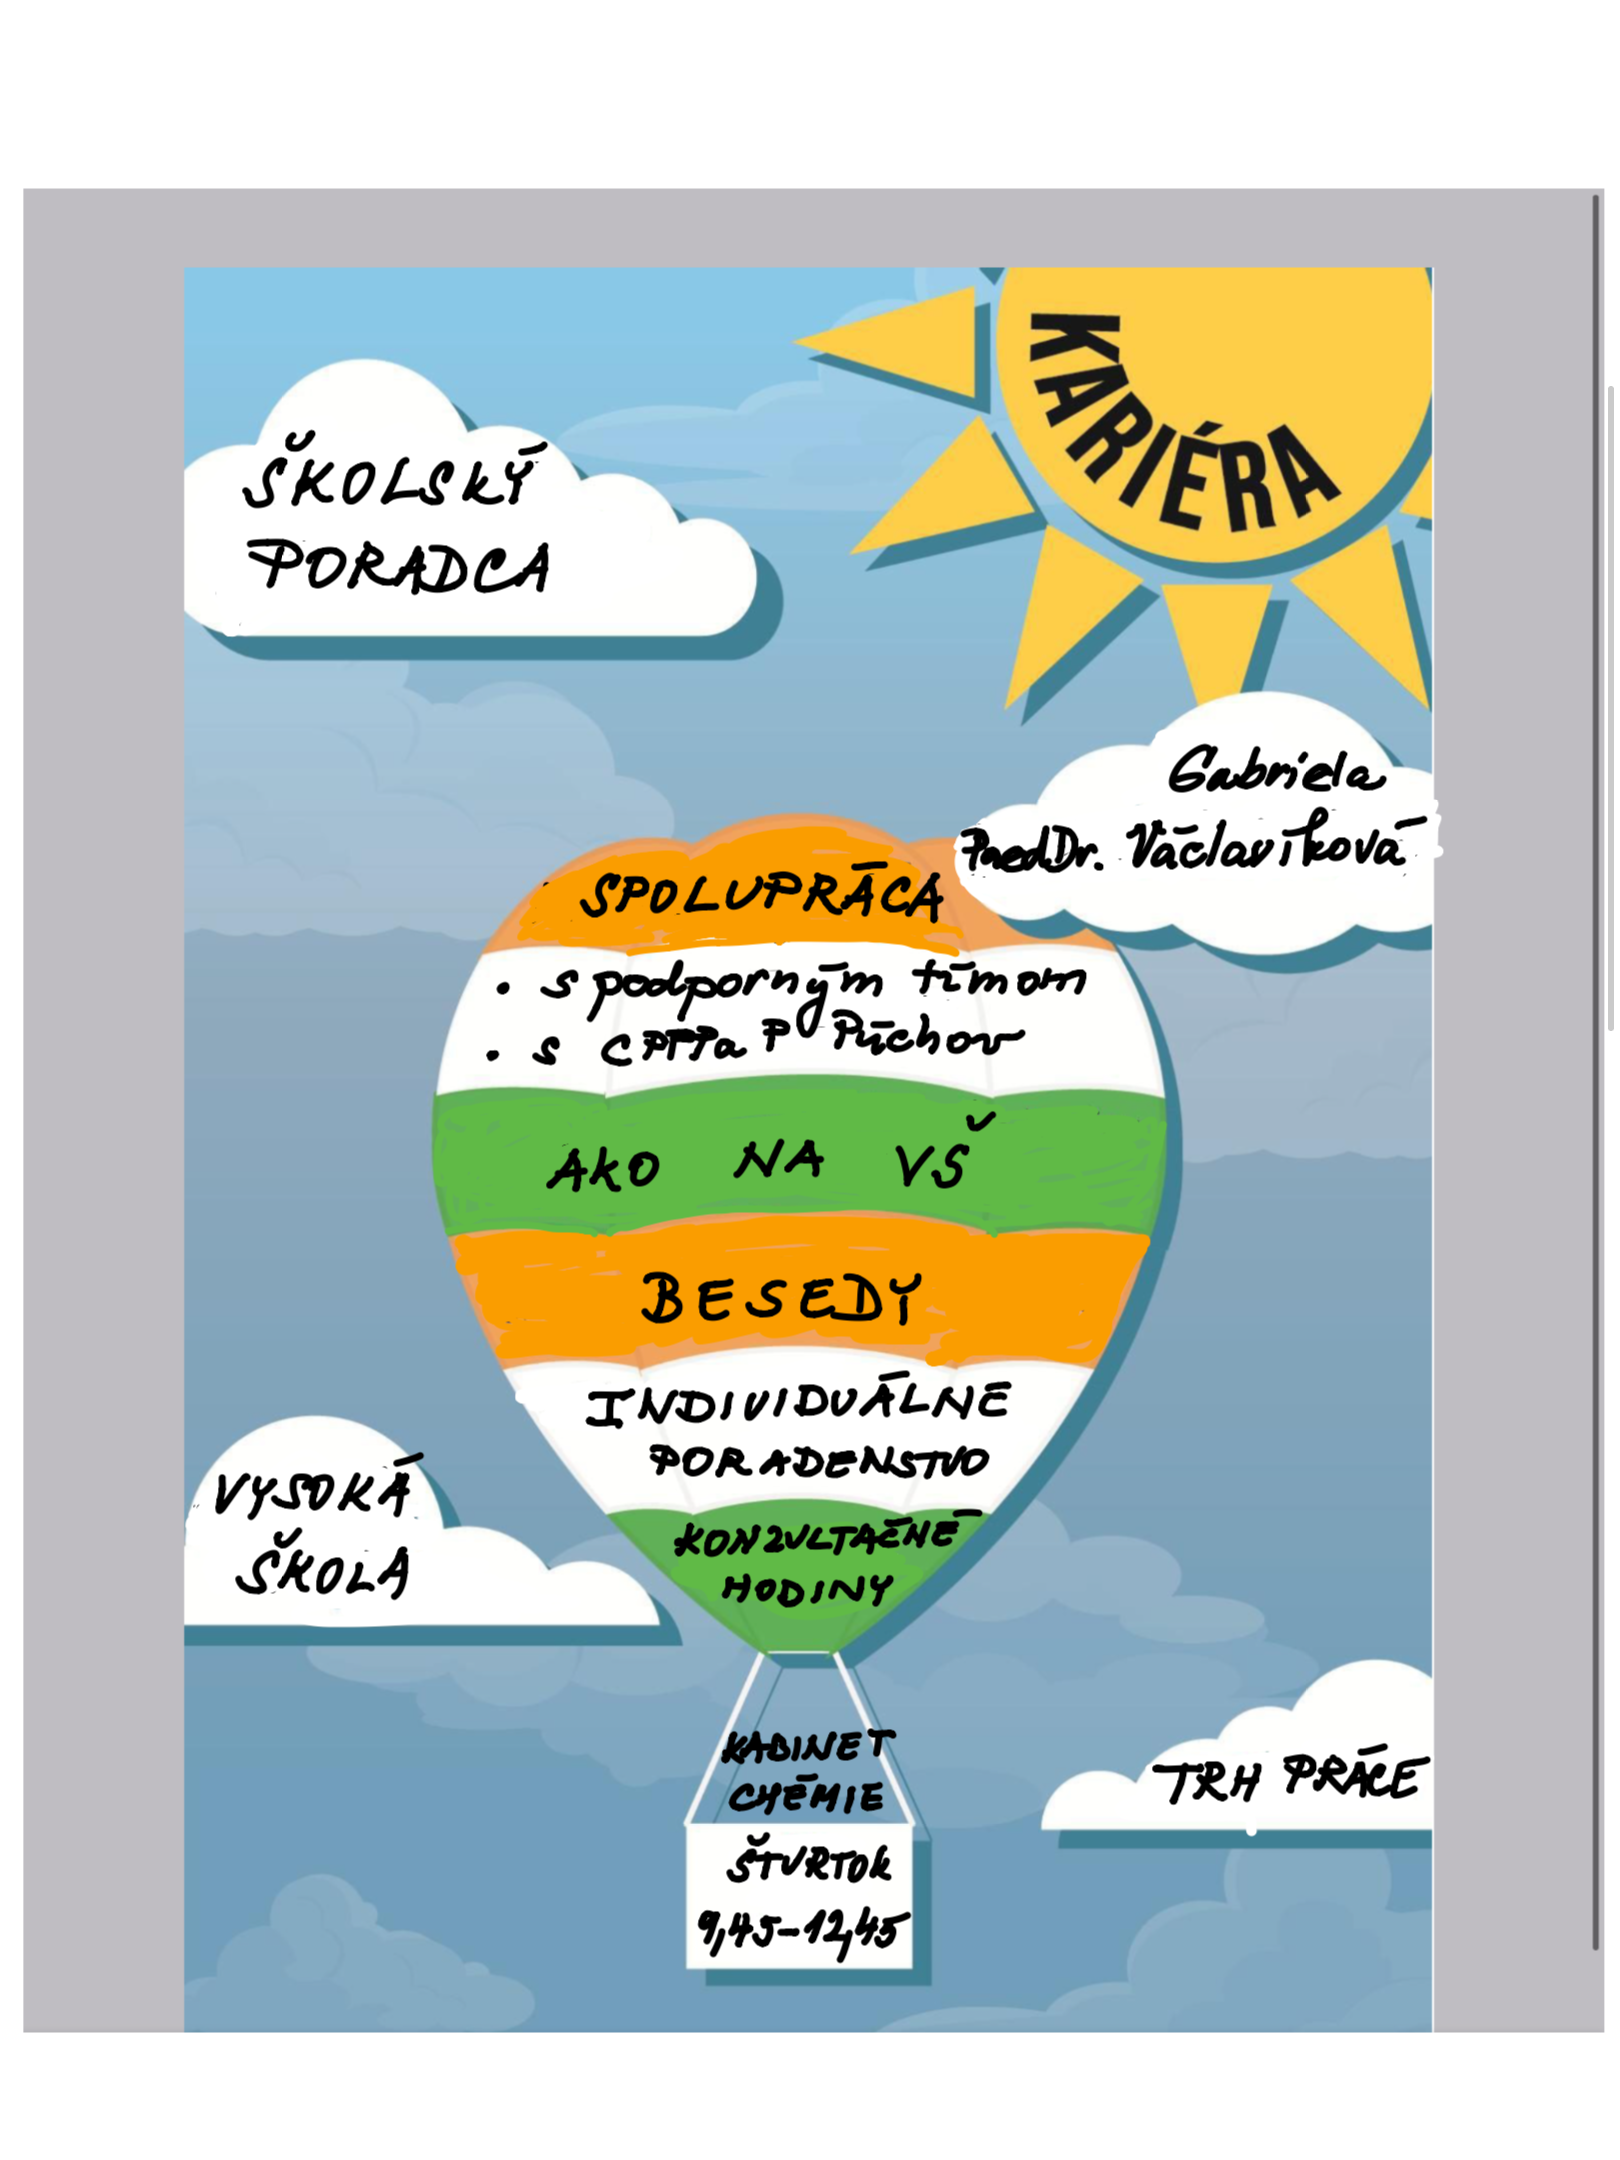 KARIÉRA
ŠKOLSKÝ
PORADCA
Gabriela
PaedDr. Václavíková
SPOLUPRÁCA
• s podporným tímom
• s CPTPaP Púchov
AKO NA VŠ
BESEDY
INDIVIDUÁLNE
PORADENSTVO
KONZULTAČNÉ
HODINY
VYSOKÁ
ŠKOLA
KABINET
CHÉMIE
TRH PRÁCE
ŠTVRTOK
9,45-12,45